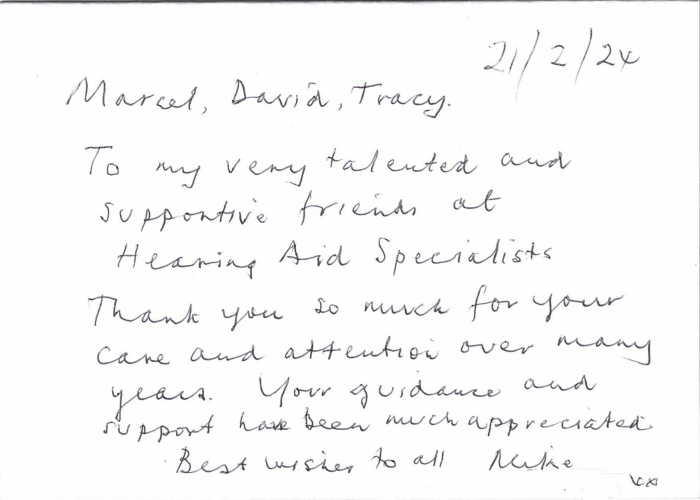 21/2/24
Marcel, David, Tracy.
To my very talented and
supportive friends at
Hearing Aid Specialists
Thank you so much for your
care and attention over many
years. Your guidance and
support have been much appreciated
Best wishes to all Mike